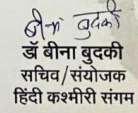 बीना बुदकी
डॉ बीना बुदकी
सचिव/संयोजक
हिंदी कश्मीरी संगम